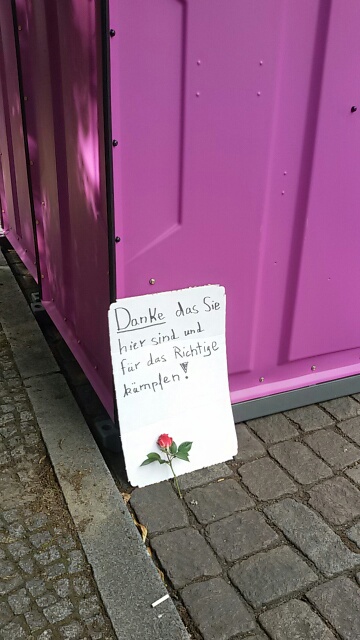 Danke das Sie
hier sind und
für das Richtige
kämpfen!